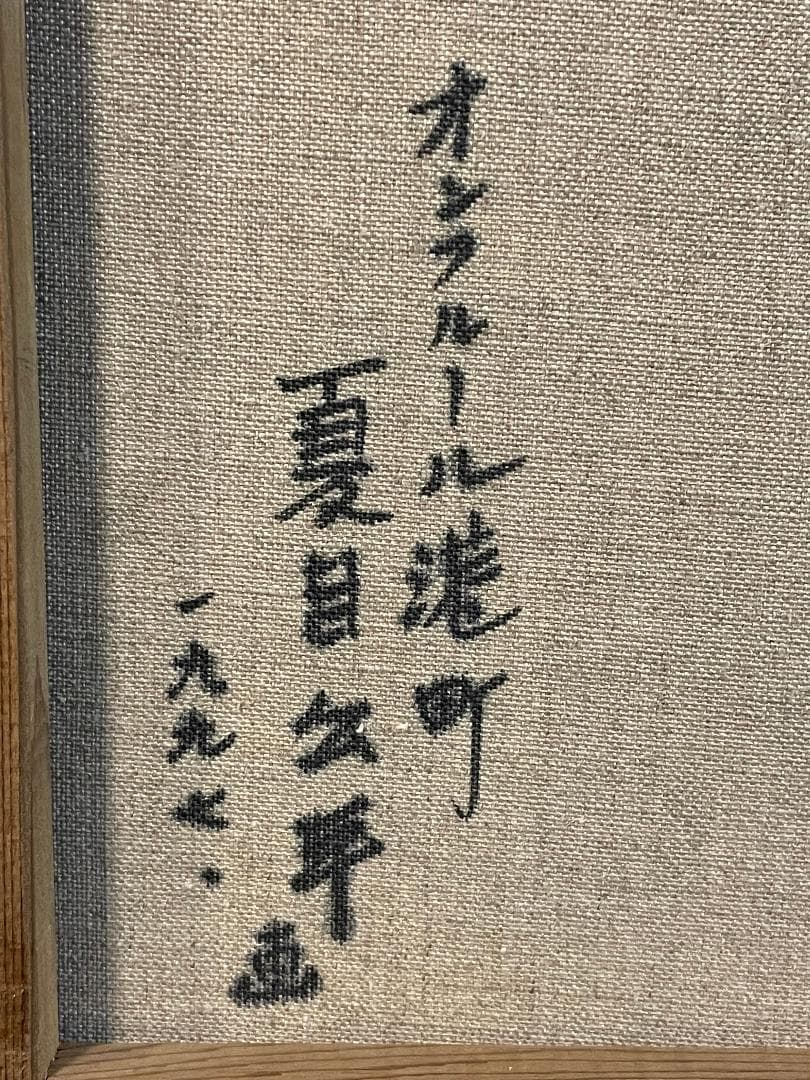 オンフルール港町
夏目公平 画
一九九七.